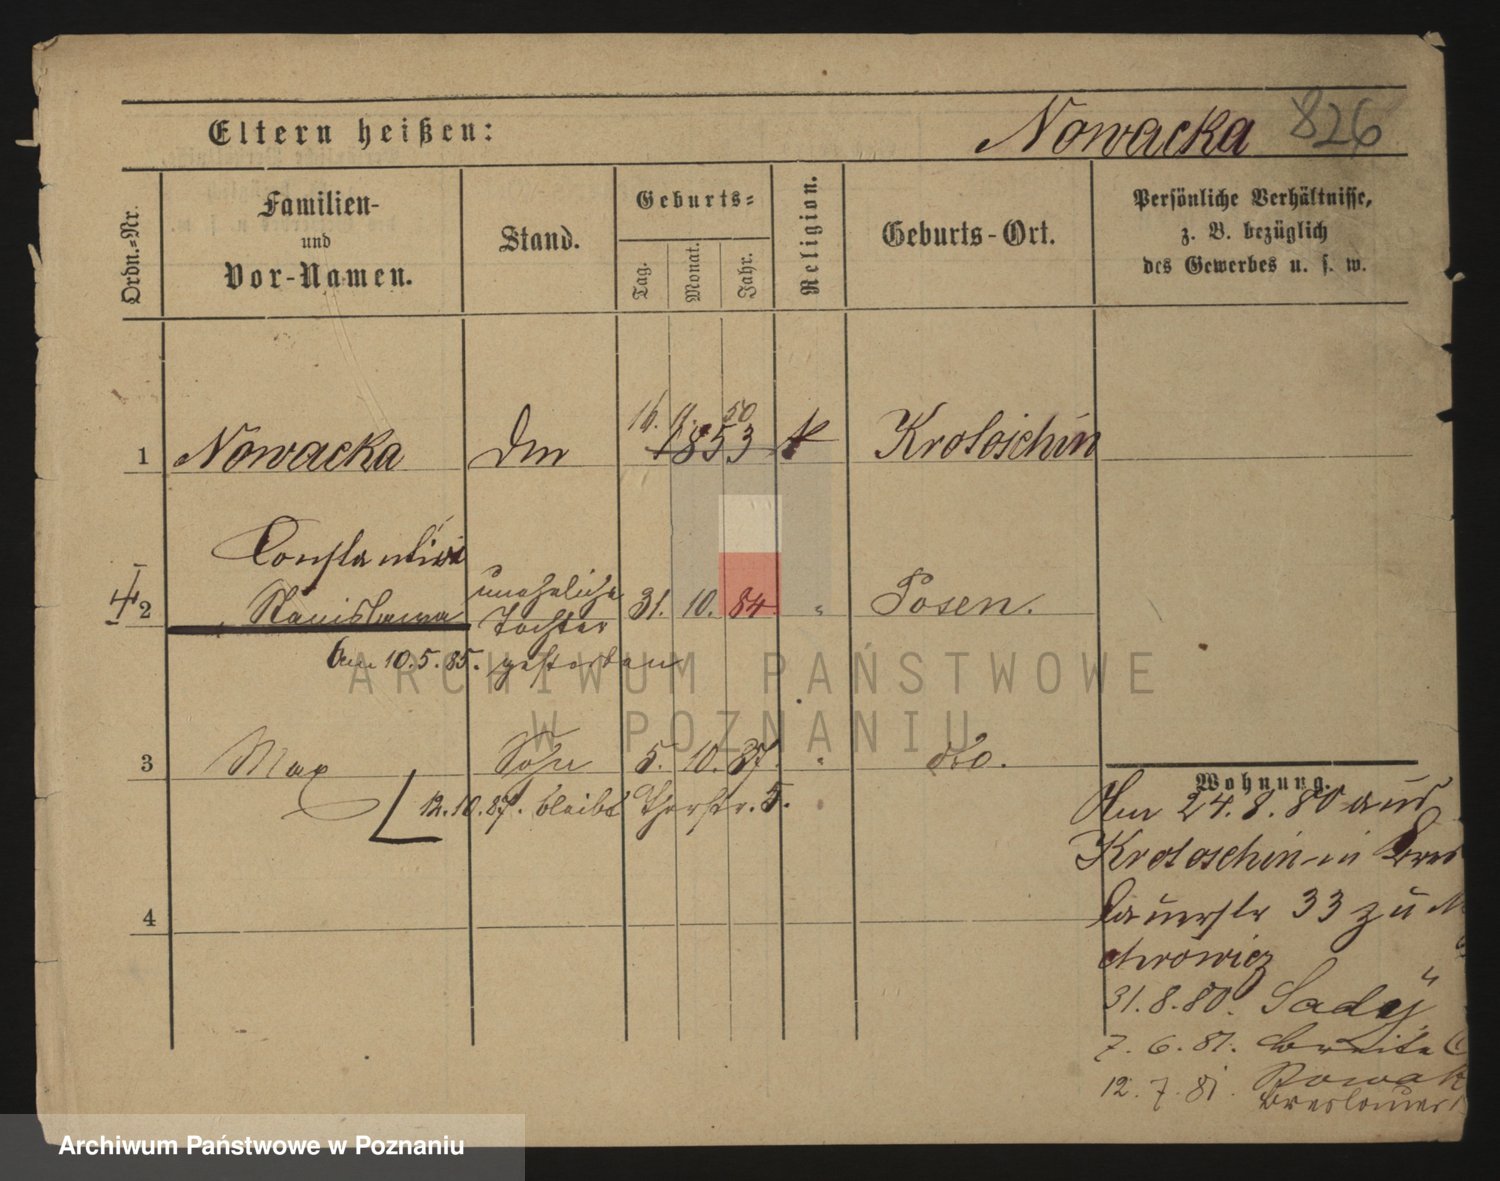 Eltern heißen: Nowacka 826
Ordn.=Nr.
Familien-
und
Vor-Namen.
Stand.
Geburts=
Tag. Monat. Jahr.
Religion.
Geburts-Ort.
Persönliche Verhältnisse,
z. B. bezüglich
des Gewerbes u. s. w.
16. 9. 50
1 Nowacka 1853 k Krotoschin
Constantine
2 Stanislawa uneheliche Tochter 31. 10. 84 " Posen.
Am 10. 5. 85. gestorben
3 Max Sohn 5. 10. 87. " dto.
12. 10. 87. bleibt Thorstr. 5.
4
Wohnung.
Am 24. 8. 80 aus
Krotoschin in Bres
lauerstr 33 zu
31. 8. 80.
7. 6. 81. Breite
12. 7. 81. Nowak
Breslauer
ARCHIWUM PAŃSTWOWE
W POZNANIU
Archiwum Państwowe w Poznaniu